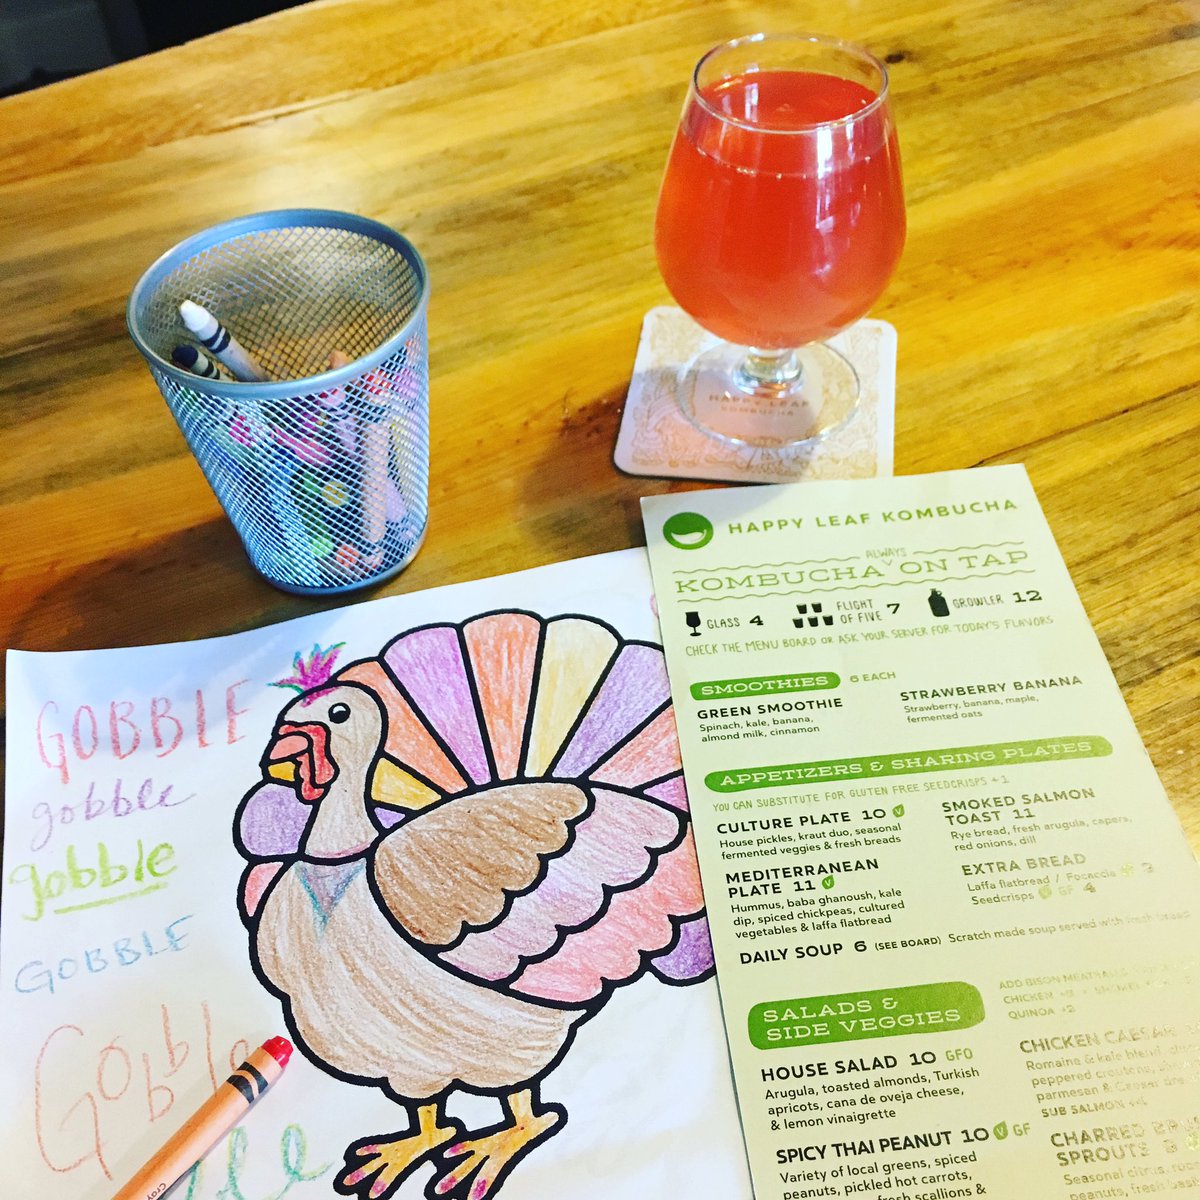 HAPPY LEAF
KOMBUCHA
HAPPY LEAF KOMBUCHA
ALWAYS
KOMBUCHA ON TAP
GLASS 4
FLIGHT
OF FIVE 7
GROWLER 12
CHECK THE MENU BOARD OR ASK YOUR SERVER FOR TODAY'S FLAVORS
SMOOTHIES 6 EACH
GREEN SMOOTHIE
Spinach, kale, banana,
almond milk, cinnamon
STRAWBERRY BANANA
Strawberry, banana, maple,
fermented oats
APPETIZERS & SHARING PLATES
YOU CAN SUBSTITUTE FOR GLUTEN FREE SEEDCRISPS +1
CULTURE PLATE 10 V
House pickles, kraut duo, seasonal
fermented veggies & fresh breads
MEDITERRANEAN
PLATE 11 V
Hummus, baba ghanoush, kale
dip, spiced chickpeas, cultured
vegetables & laffa flatbread
SMOKED SALMON
TOAST 11
Rye bread, fresh arugula, capers,
red onions, dill
EXTRA BREAD
Laffa flatbread / Focaccia 3
Seedcrisps V GF 4
DAILY SOUP 6 (SEE BOARD) Scratch made soup served with fresh bread
SALADS &
SIDE VEGGIES
ADD BISON MEATBALLS
CHICKEN
QUINOA +2
HOUSE SALAD 10 GFO
Arugula, toasted almonds, Turkish
apricots, cana de oveja cheese,
& lemon vinaigrette
CHICKEN CAESAR
Romaine & kale blend,
peppered croutons,
parmesan & Caesar
SUB SALMON +4
SPICY THAI PEANUT 10 V GF
Variety of local greens, spiced
peanuts, pickled hot carrots,
fresh scallions &
CHARRED
SPROUTS
Seasonal citrus,
peanuts, fresh
GOBBLE
gobble
gobble
GOBBLE
Gobble